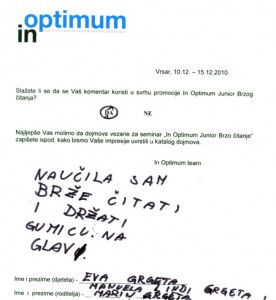 in optimum
Vrsar, 10.12. – 15.12.2010.
Slažete li se da se Vaš komentar koristi u svrhu promocije In Optimum Junior Brzog
čitanja?
DA NE
Najljepše Vas molimo da dojmove vezane za seminar „In Optimum Junior Brzo čitanje“
zapišete ispod, kako bismo Vaše impresije uvrstili u katalog dojmova.
In Optimum team
NAUČILA SAM
BRŽE ČITATI
I DRŽATI
GUMICU NA
GLAVI.
Ime i prezime (djeteta) - EVA GRGETA
Ime i prezime (roditelja) - MANUELA I INDI GRGETA
MARIN GRGETA